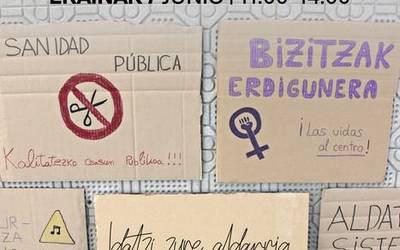 EKAINAK 7 JUNIO | 11:00-14:00
SANIDAD
PÚBLICA
Kalitatezko Osasun Publikoa!!!
BIZITZAK
ERDIGUNERA
¡Las vidas
al centro!
UR-
ZA
Idatzi zure aldarria
ALDAT
SISTE